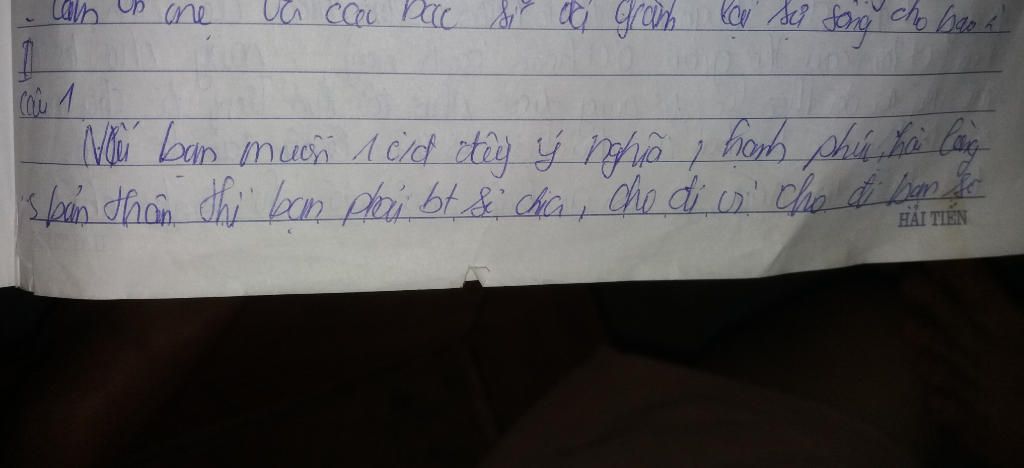 - Cảm ơn mẹ và các bác sĩ đã giành lại sự sống cho bao
II
Câu 1
Nếu bạn muốn 1 c/đ đầy ý nghĩa, hạnh phúc, hài lòng
bản thân thì bạn phải bt sẻ chia, cho đi vì cho đi bạn sẽ
HẢI TIẾN